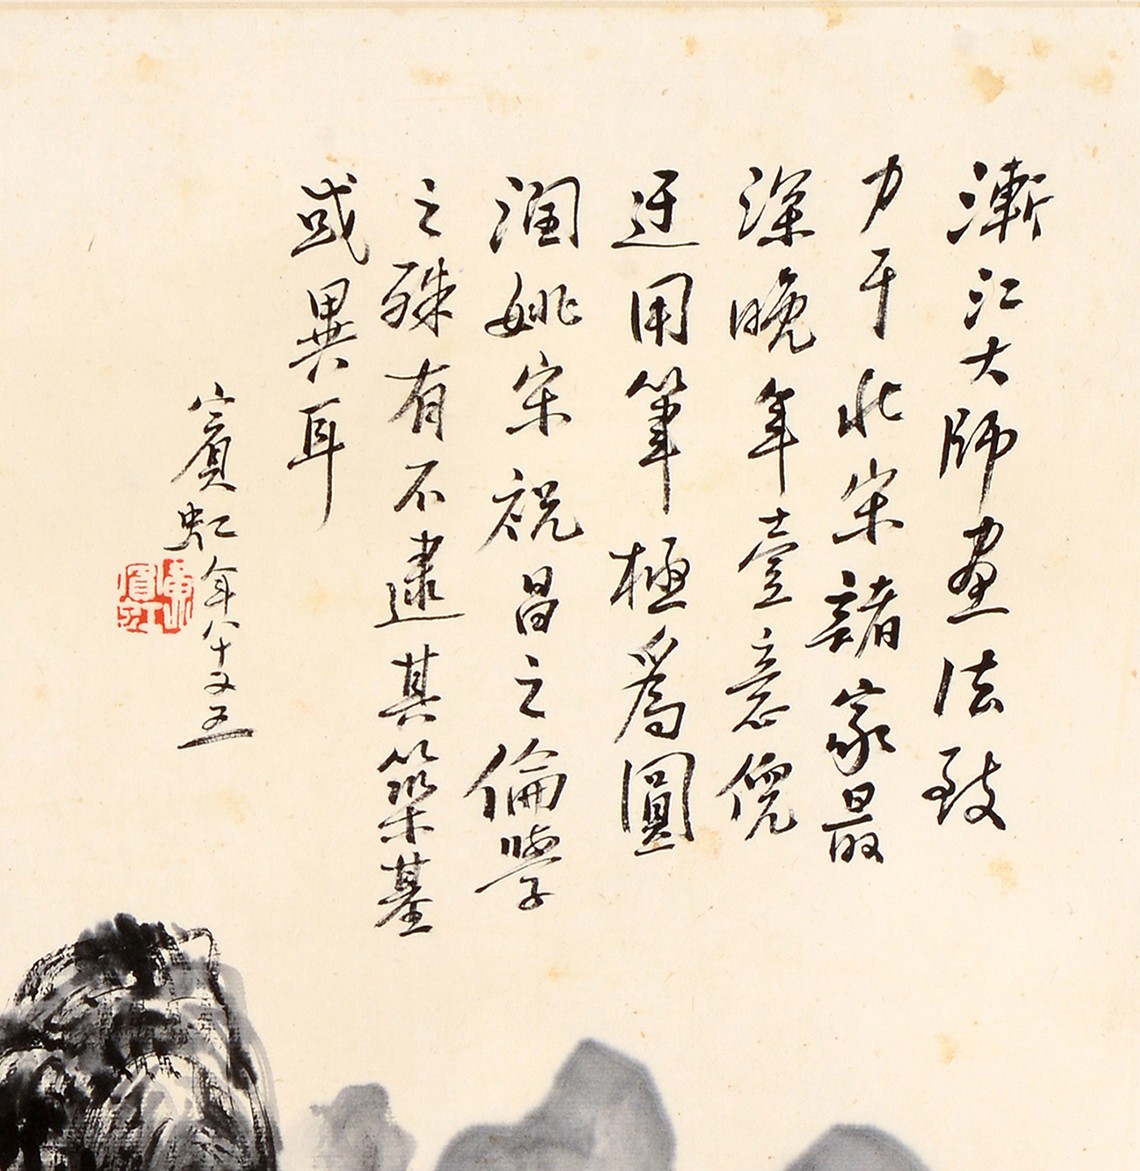 漸江大師画法致
力于北宋諸家最
深晚年壹意倪
迂用筆極爲圓
潤姚宋祝昌之倫學
之殊有不逮其築基
或異耳
賓虹年八十又五
黃賓虹